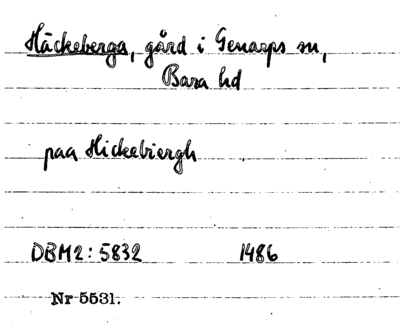 Häckeberga, gård i Genarps sn,
Bara hd
paa Hickebiergh
DBM2: 5832 1486
Nr 5531.